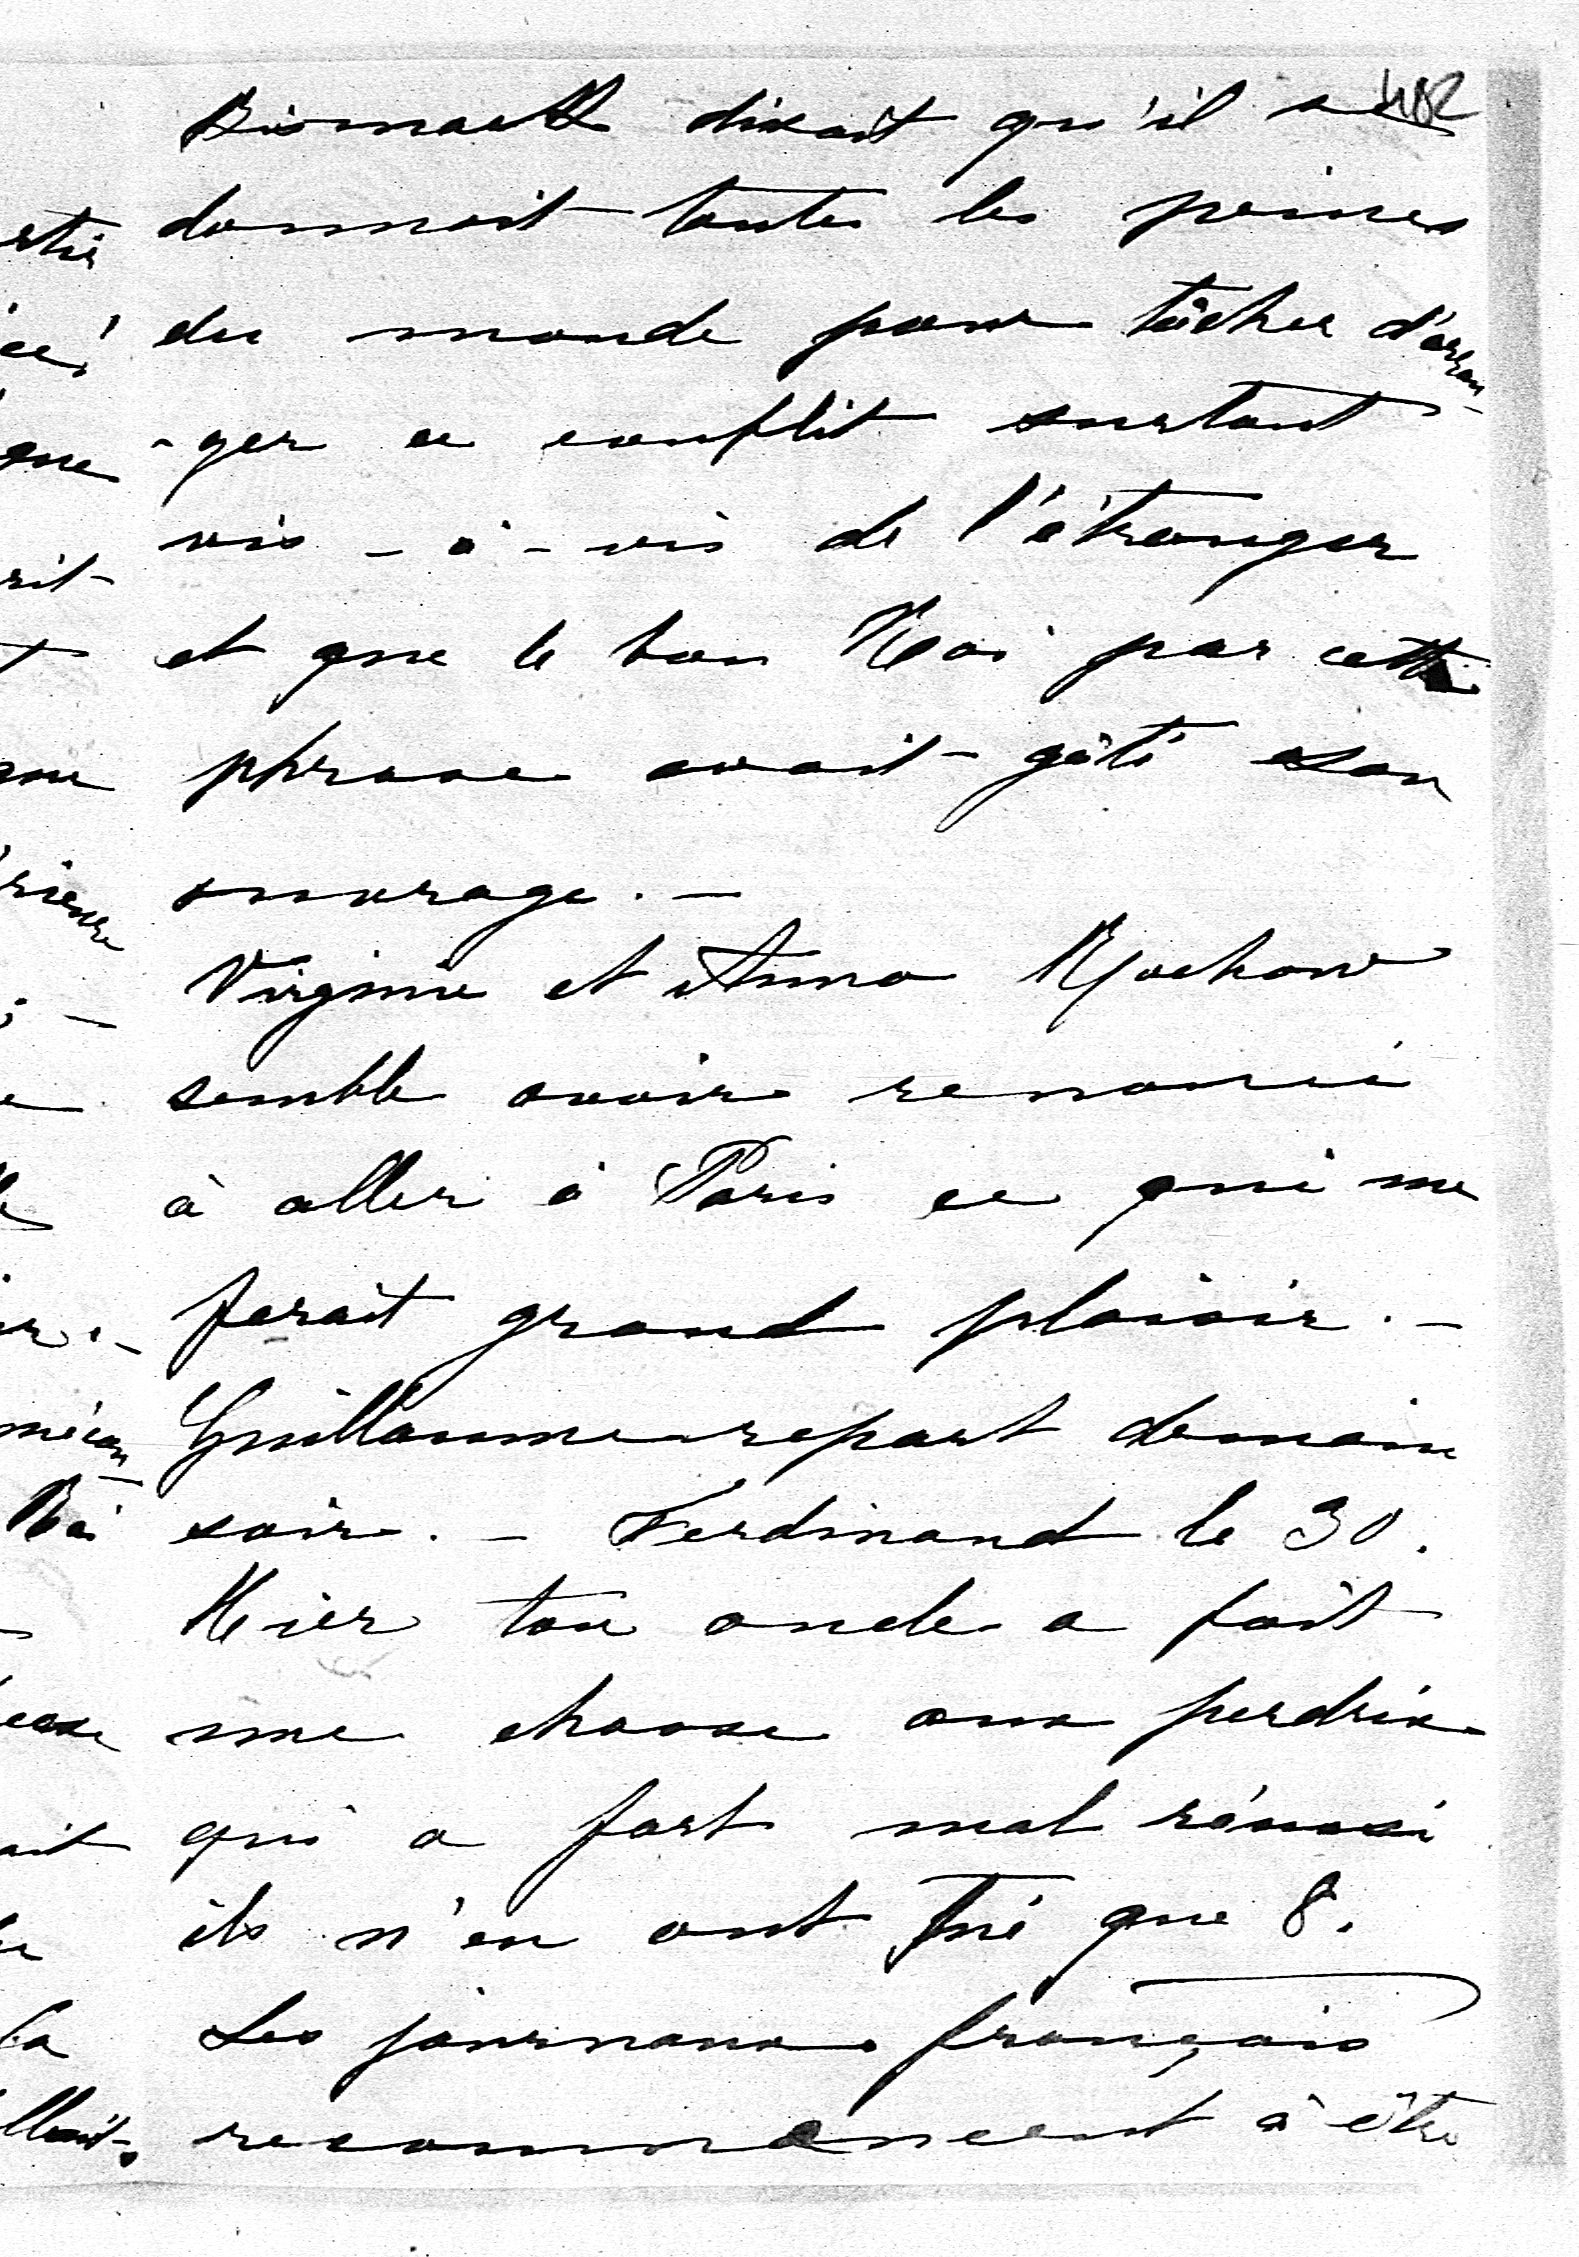 482
Bismarck disait qu'il se
donnait toutes les peines
du monde pour tâcher d'arran-
-ger ce conflit surtout
vis-à-vis de l'étranger
et que le bon Roi par cette
phrase avait gâté son
ouvrage. —
Virginie et Anna Rochow
semble avoir renoncé
à aller à Paris ce qui me
ferait grand plaisir. —
Guillaume repart demain
soir. — Ferdinand le 30.
Hier ton oncle a fait
une chasse aux perdrix
qui a fort mal réussi
ils n'en ont tué que 8.
Les journaux français
recommencent à être